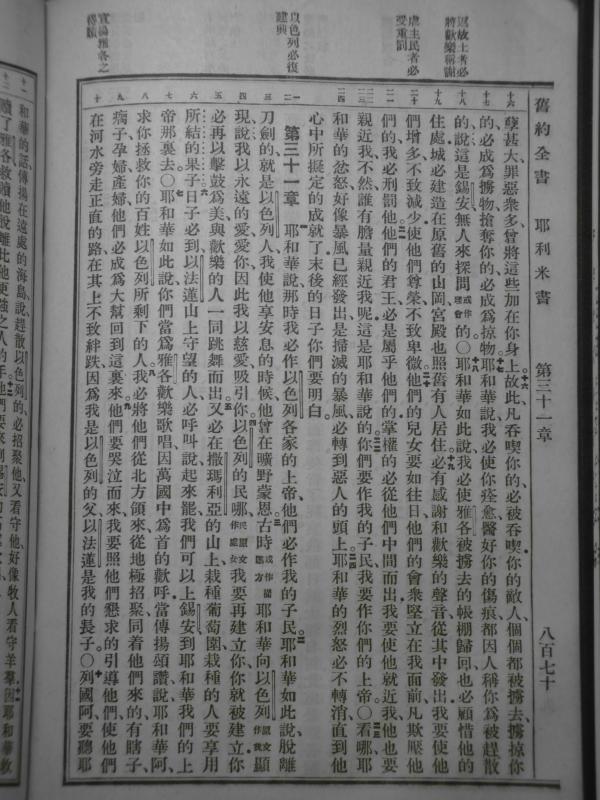 返故土者必
將歡樂稱謝
虐主民者必
受重罰
以色列必復
建興
宣揚雅各之
得贖
舊約全書 耶利米書 第三十一章 八百七十
十六 孽甚大罪惡衆多曾將這些加在你身上故此凡吞喫你的必被吞喫你的敵人個個都被擄去擄掠你
十七 的必成爲擄物搶奪你的必成爲掠物耶和華說我必使你痊愈醫好你的傷痕都因人稱你爲被趕散
十八 的說這是錫安無人來探問或作理會的○耶和華如此說我必使雅各被擄去的帳棚歸回也必顧惜他的
十九 住處城必建造在原舊的山岡宮殿也照舊有人居住必有感謝和歡樂的聲音從其中發出我要使他
二十 們增多不致減少使他們尊榮不致卑微他們的兒女要如往日他們的會衆堅立在我面前凡欺壓他
二一 們的我必刑罰他他們的君王必是屬乎他們的掌權的必從他們中間而出我要使他就近我他也要
親近我不然誰有膽量親近我呢這是耶和華說的你們要作我的子民我要作你們的上帝○看哪耶
二四 和華的忿怒好像暴風已經發出是掃滅的暴風必轉到惡人的頭上耶和華的烈怒必不轉消直到他
心中所擬定的成就了末後的日子你們要明白
第三十一章 耶和華說那時我必作以色列各家的上帝他們必作我的子民耶和華如此說脫離
三 刀劍的就是以色列人我使他享安息的時候他曾在曠野蒙恩古時或作從遠方耶和華向以色列原文作我顯
四 現說我以永遠的愛愛你因此我以慈愛吸引你以色列的民哪民原文作處女我要再建立你你就被建立你
五 必再以擊鼓爲美與歡樂的人一同跳舞而出又必在撒瑪利亞的山上栽種葡萄園栽種的人要享用
六 所結的果子日子必到以法蓮山上守望的人必呼叫說起來罷我們可以上錫安到耶和華我們的上
七 帝那裏去○耶和華如此說你們當爲雅各歡樂歌唱因萬國中爲首的歡呼當傳揚頌讚說耶和華阿
八 求你拯救你的百姓以色列所剩下的人我必將他們從北方領來從地極招聚同着他們來的有瞎子
九 瘸子孕婦產婦他們必成爲大幫回到這裏來他們要哭泣而來我要照他們懇求的引導他們使他們
十 在河水旁走正直的路在其上不致絆跌因爲我是以色列的父以法蓮是我的長子○列國阿要聽耶
十一 和華的話傳揚在遠處的海島說趕散以色列的必招聚他又看守他好像牧人看守羊羣因耶和華救
贖了雅各救贖他脫離比他更強之人的手